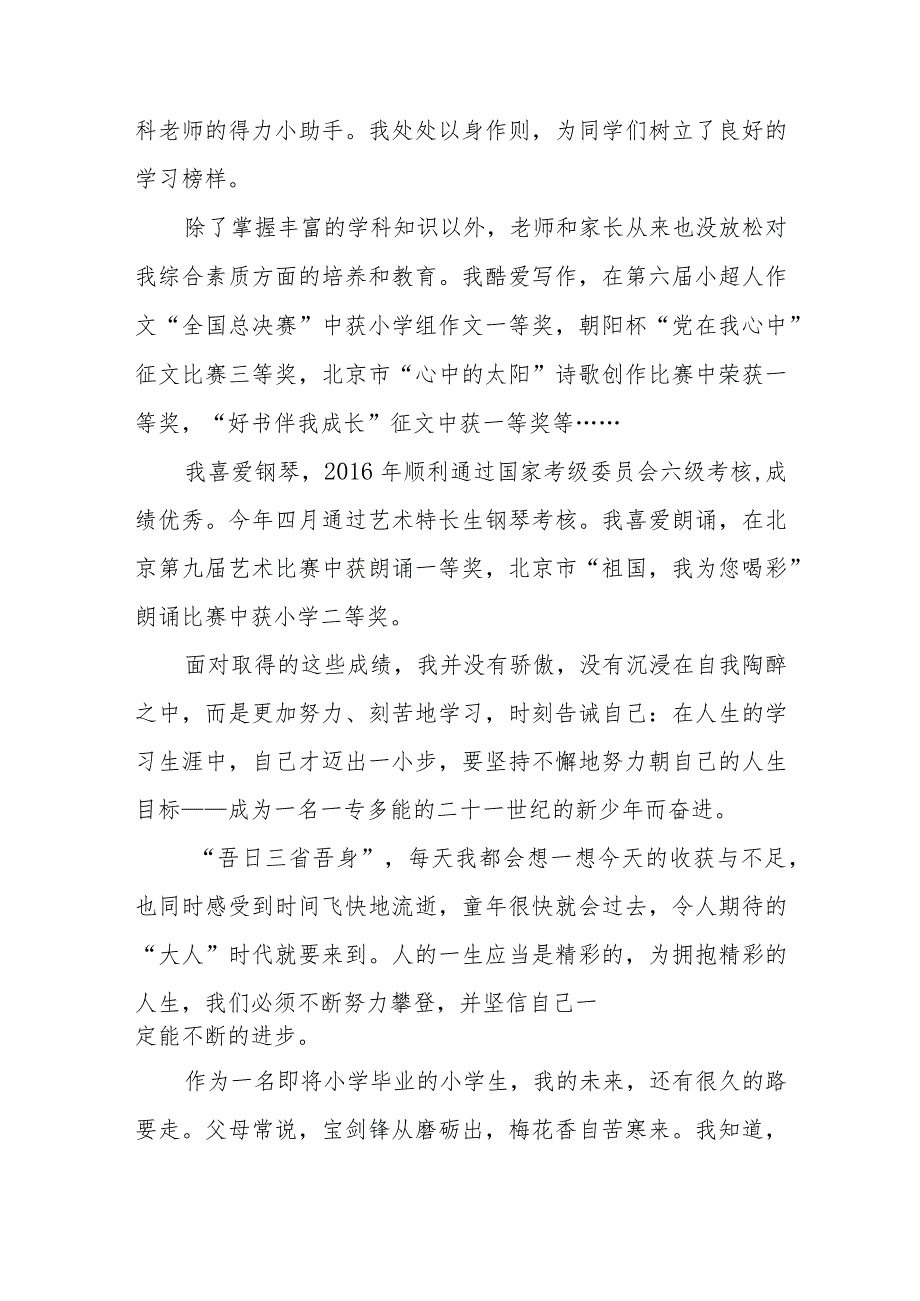 科老师的得力小助手。我处处以身作则，为同学们树立了良好的
学习榜样。
除了掌握丰富的学科知识以外，老师和家长从来也没放松对
我综合素质方面的培养和教育。我酷爱写作，在第六届小超人作
文“全国总决赛”中获小学组作文一等奖，朝阳杯“党在我心中”
征文比赛三等奖，北京市“心中的太阳”诗歌创作比赛中荣获一
等奖，“好书伴我成长”征文中获一等奖等……
我喜爱钢琴，2016 年顺利通过国家考级委员会六级考核,成
绩优秀。今年四月通过艺术特长生钢琴考核。我喜爱朗诵，在北
京第九届艺术比赛中获朗诵一等奖，北京市“祖国，我为您喝彩”
朗诵比赛中获小学二等奖。
面对取得的这些成绩，我并没有骄傲，没有沉浸在自我陶醉
之中，而是更加努力、刻苦地学习，时刻告诫自己：在人生的学
习生涯中，自己才迈出一小步，要坚持不懈地努力朝自己的人生
目标——成为一名一专多能的二十一世纪的新少年而奋进。
“吾日三省吾身”，每天我都会想一想今天的收获与不足，
也同时感受到时间飞快地流逝，童年很快就会过去，令人期待的
“大人”时代就要来到。人的一生应当是精彩的，为拥抱精彩的
人生，我们必须不断努力攀登，并坚信自己一
定能不断的进步。
作为一名即将小学毕业的小学生，我的未来，还有很久的路
要走。父母常说，宝剑锋从磨砺出，梅花香自苦寒来。我知道，